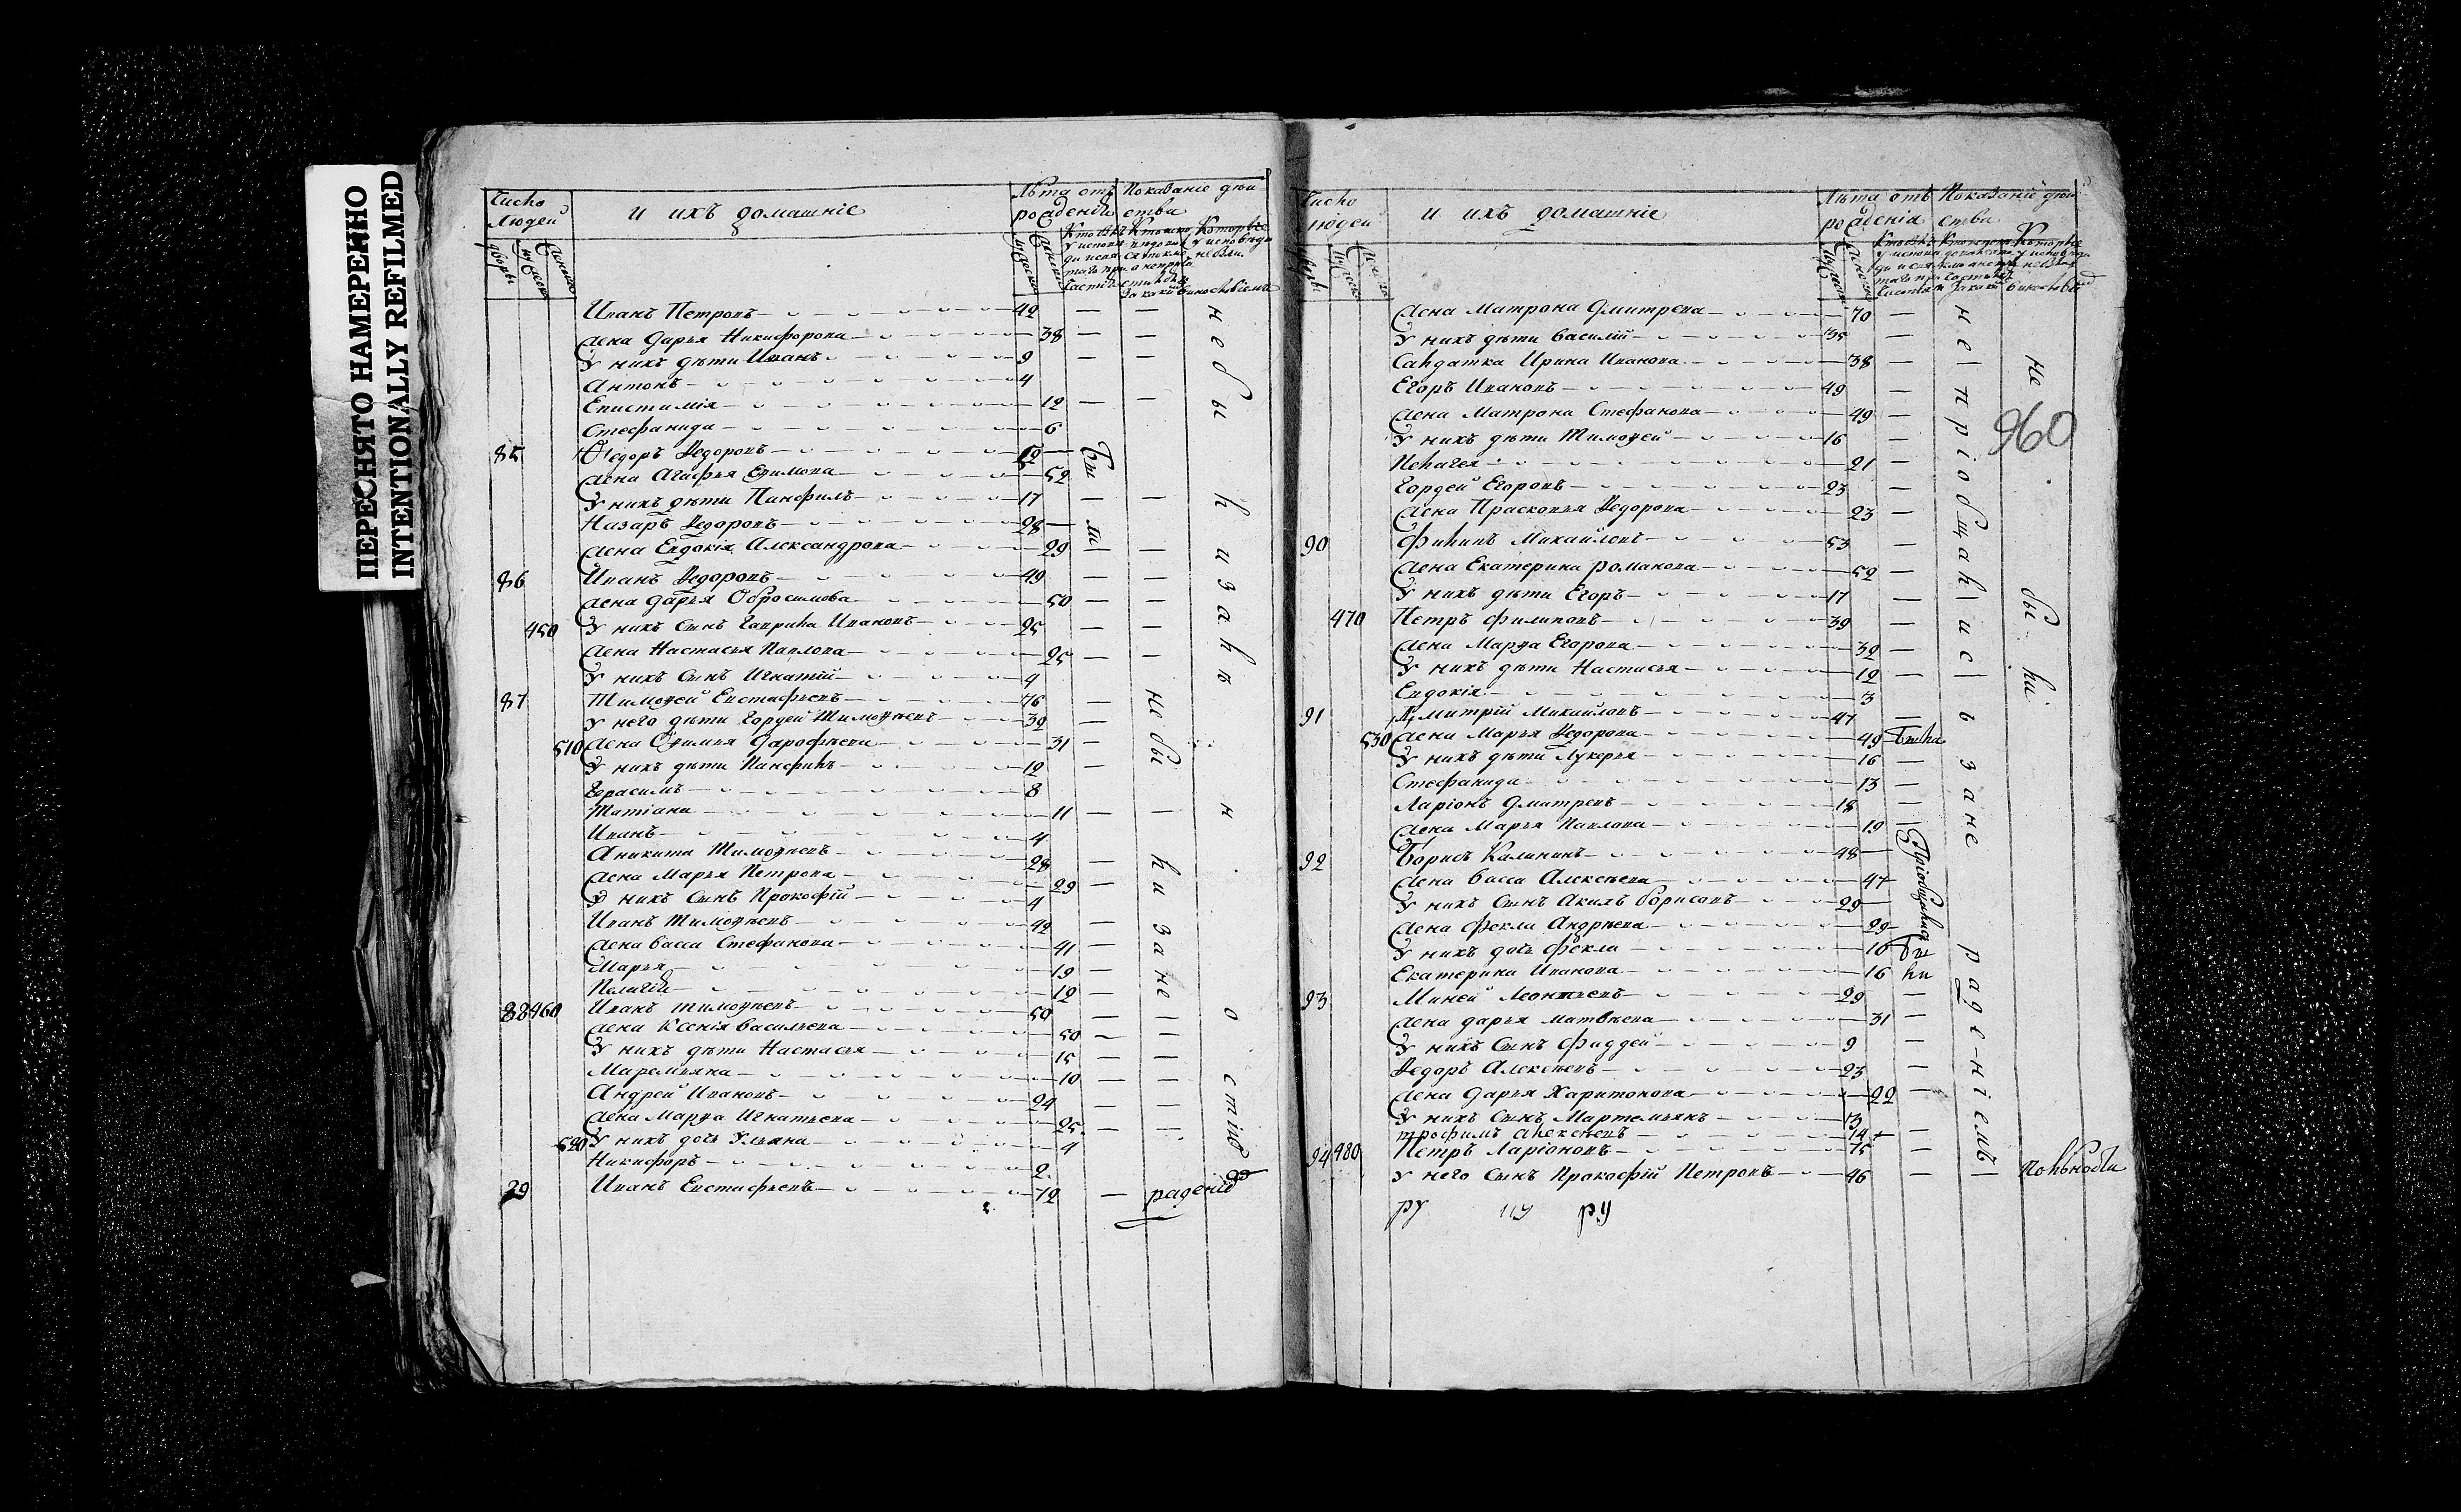 ПЕРЕСНЯТО НАМЕРЕННО
INTENTIONALLY REFILMED
Число людей
и ихъ домашніе
Лѣта отъ рожденій
Показаніе дѣйства
Иванъ Петровъ 42
Жена Дарья Никифорова 38
У нихъ дѣти Иванъ 9
Антонъ 4
Епистимія 12
Стефанида 6
85 Ѳедоръ Ѳедоровъ
Жена Агафья Ефимова 52
У нихъ дѣти Панфилъ 17
Назаръ Ѳедоровъ 28
Жена Евдокія Александрова 29
86 Иванъ Ѳедоровъ 49
Жена Дарья Обросимова 50
450 У нихъ сынъ Гаврила Ивановъ 25
Жена Настасья Павлова 25
У нихъ сынъ Игнатій 4
87 Тимоѳей Евстафьевъ 76
У него дѣти Гордей Тимоѳѣевъ 39
510 Жена Ефимья Дарофѣева 31
У нихъ дѣти Панфилъ 12
Герасимъ 8
Татіана 11
Иванъ 4
Аникита Тимоѳѣевъ 28
Жена Марья Петрова 29
У нихъ сынъ Прокофій 4
Иванъ Тимоѳѣевъ 42
Жена Васса Стефанова 41
Марья 19
Пелагія 12
88 460 Иванъ Тимоѳѣевъ 50
Жена Ксенія Васильева 50
У нихъ дѣти Настасья 15
Маремьяна 10
Андрей Ивановъ 24
Жена Марѳа Игнатьева 25
520 У нихъ дочь Ульяна 4
Никифоръ 2
89 Иванъ Евстафьевъ 72
не были за нерадѣніе
Число людей
и ихъ домашніе
Лѣта отъ рожденія
Показаніе дѣйства
Жена Матрона Дмитрева 70
У нихъ дѣти Василій 35
Салдатка Ирина Иванова 38
Егоръ Ивановъ 49
Жена Матрона Стефанова 49
У нихъ дѣти Тимоѳей 16
Пелагея 21
Гордей Егоровъ 23
Жена Прасковья Ѳедорова 23
90 Филипъ Михайловъ 53
Жена Екатерина Романова 52
У нихъ дѣти Егоръ 17
470 Петръ Филиповъ 39
Жена Марѳа Егорова 32
У нихъ дѣти Настасья 12
Евдокія 3
91 Дмитрій Михайловъ 47
530 Жена Марья Ѳедорова 49 Была
У нихъ дѣти Лукерья 16
Стефанида 13
Ларіонъ Дмитревъ 18
Жена Марья Павлова 19
92 Борисъ Калининъ 48
Жена Васса Алексѣева 47
У нихъ сынъ Акимъ Борисовъ 29
Жена Фекла Андрѣева 29
У нихъ дочь Фекла 10
Екатерина Иванова 16
93 Миней Леонтьевъ 29
Жена Дарья Матвѣева 31
У нихъ сынъ Фаддей 9
Ѳедоръ Алексѣевъ 23
Жена Дарья Харитонова 22
У нихъ сынъ Мартемьянъ 3
Трофимъ Алексѣевъ 14
94 480 Петръ Ларіоновъ 75
У него сынъ Прокофій Петровъ 46
не пріобщались за нерадѣніемъ
не были
960
ру ру